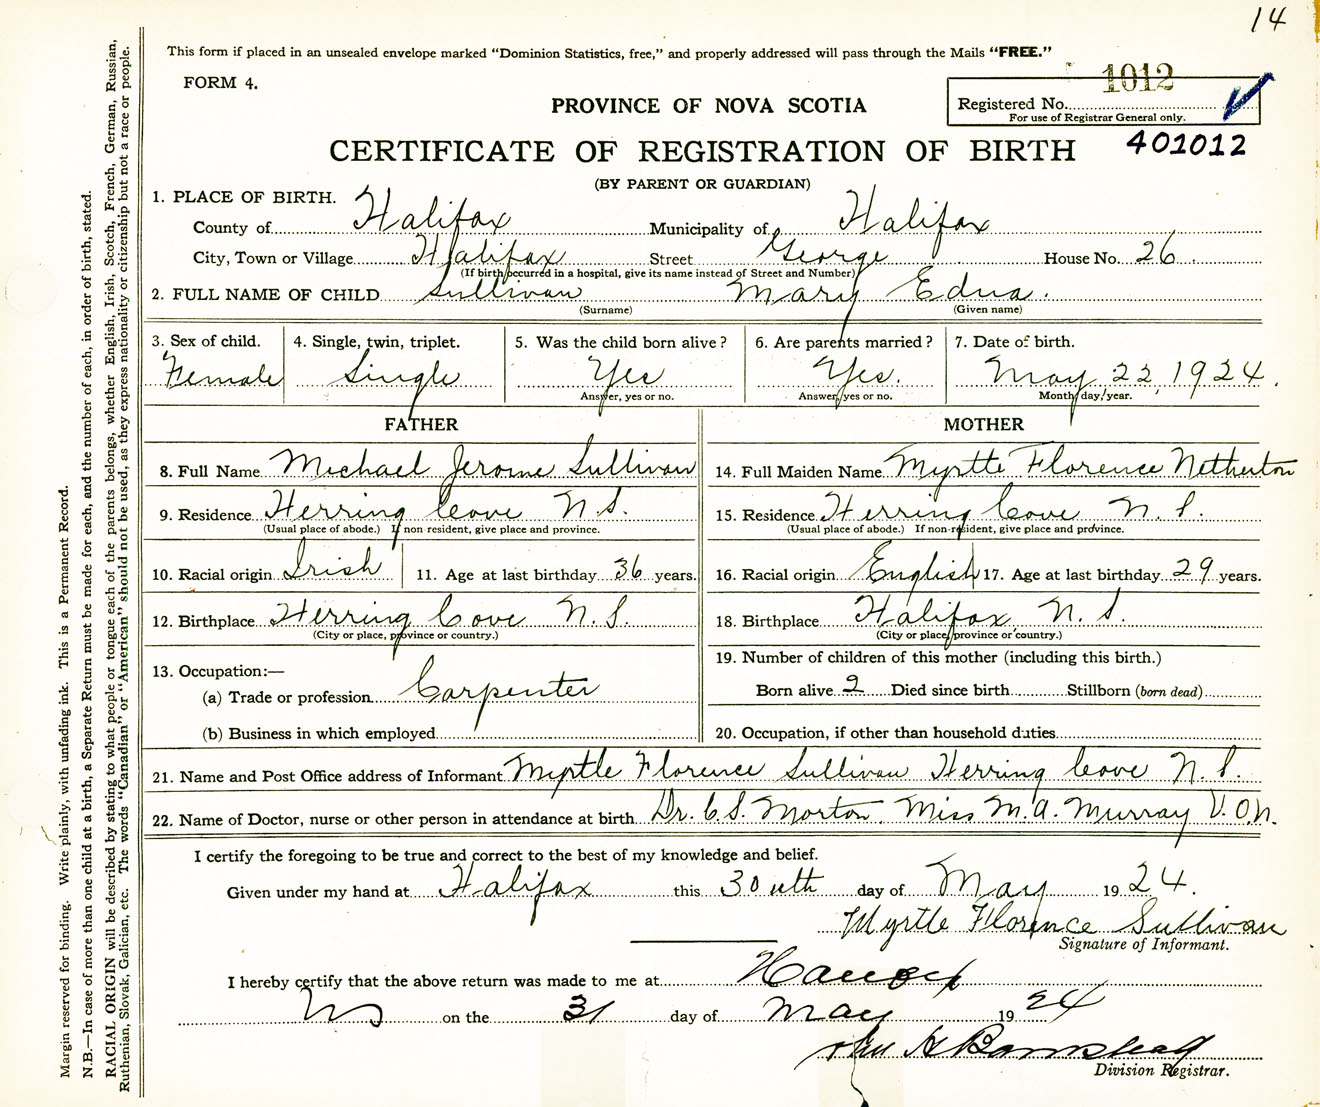 14
This form if placed in an unsealed envelope marked "Dominion Statistics, free," and properly addressed will pass through the Mails "FREE."
FORM 4.
1012
PROVINCE OF NOVA SCOTIA
Registered No.
For use of Registrar General only.
CERTIFICATE OF REGISTRATION OF BIRTH
401012
(BY PARENT OR GUARDIAN)
1. PLACE OF BIRTH.
County of Halifax Municipality of Halifax
City, Town or Village Halifax Street George House No. 26
(If birth occurred in a hospital, give its name instead of Street and Number)
2. FULL NAME OF CHILD Sullivan Mary Edna.
(Surname) (Given name)
3. Sex of child. 4. Single, twin, triplet. 5. Was the child born alive? 6. Are parents married? 7. Date of birth.
Female Single Yes Yes. May 22, 1924.
Answer, yes or no. Answer, yes or no. Month, day, year.
FATHER MOTHER
8. Full Name Michael Jerome Sullivan 14. Full Maiden Name Myrtle Florence Netherton
9. Residence Herring Cove N.S. 15. Residence Herring Cove N.S.
(Usual place of abode.) If non resident, give place and province. (Usual place of abode.) If non-resident, give place and province.
10. Racial origin Irish 11. Age at last birthday 36 years. 16. Racial origin English 17. Age at last birthday 29 years.
12. Birthplace Herring Cove N.S. 18. Birthplace Halifax, N.S.
(City or place, province or country.) (City or place, province or country.)
13. Occupation:— 19. Number of children of this mother (including this birth.)
(a) Trade or profession Carpenter Born alive 2 Died since birth Stillborn (born dead)
(b) Business in which employed 20. Occupation, if other than household duties
21. Name and Post Office address of Informant Myrtle Florence Sullivan Herring Cove N.S.
22. Name of Doctor, nurse or other person in attendance at birth Dr. C.S. Morton Miss M.A. Murray V.O.N.
I certify the foregoing to be true and correct to the best of my knowledge and belief.
Given under my hand at Halifax this 30 day of May 1924.
Myrtle Florence Sullivan
Signature of Informant.
I hereby certify that the above return was made to me at
NS on the 31 day of May 1924
Division Registrar.
Margin reserved for binding. Write plainly, with unfading ink. This is a Permanent Record.
N.B.—In case of more than one child at a birth, a Separate Return must be made for each, and the number of each, in order of birth, stated.
RACIAL ORIGIN will be described by stating to what people or tongue each of the parents belongs, whether English, Irish, Scotch, French, German, Russian,
Ruthenian, Slovak, Galician, etc. The words "Canadian" or "American" should not be used, as they express nationality or citizenship but not a race or people.